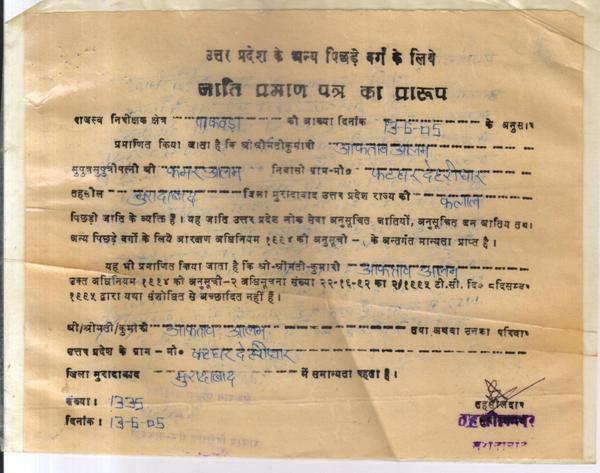 उत्तर प्रदेश के अन्य पिछड़े वर्ग के लिये
जाति प्रमाण पत्र का प्रारूप
राजस्व निरीक्षक क्षेत्र पाकवड़ा की आख्या दिनांक 13-6-05 के अनुसार
प्रमाणित किया जाता है कि श्री/श्रीमती/कुमारी आफताब आलम
सुपुत्र/सुपुत्री/पत्नी श्री कमर आलम निवासी ग्राम-मो० कटघर देहरीधार
तहसील मुरादाबाद जिला मुरादाबाद उत्तर प्रदेश राज्य की कलाल
पिछड़ी जाति के व्यक्ति हैं। यह जाति उत्तर प्रदेश लोक सेवा अनुसूचित जातियों, अनुसूचित जन जातियों तथा
अन्य पिछड़े वर्गों के लिये आरक्षण अधिनियम १९९४ की अनुसूची - के अन्तर्गत मान्यता प्राप्त है।
यह भी प्रमाणित किया जाता है कि श्री-श्रीमती-कुमारी आफताब आलम
उक्त अधिनियम १९९४ की अनुसूची-२ अधिसूचना संख्या २२-१६-९२ का २/१९९५ टी.सी. दि० ८ दिसम्बर
१९९५ द्वारा यथा संशोधित से अच्छादित नहीं हैं।
श्री/श्रीमती/कुमारी आफताब आलम तथा अथवा उनका परिवार
उत्तर प्रदेश के ग्राम - मो० कटघर देहरीधार
जिला मुरादाबाद मुरादाबाद में सामान्यता रहता है।
संख्या : 1335
दिनांक : 13-6-05
तहसीलदार
मुरादाबाद